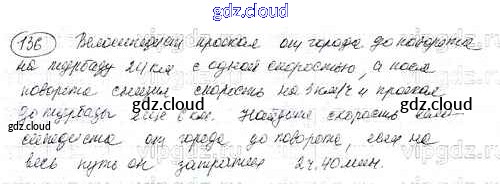 gdz.cloud
136 Велосипедист проехал от города до поворота
на турбазу 24 км с одной скоростью, а после
поворота снизил скорость на км/ч и проехал
gdz.cloud
до турбазы км. Найдите скорость вело-
сипедиста от города до поворота, если на
весь путь он затратил 2 ч. 40 мин.
gdz.cloud
gdz.cloud